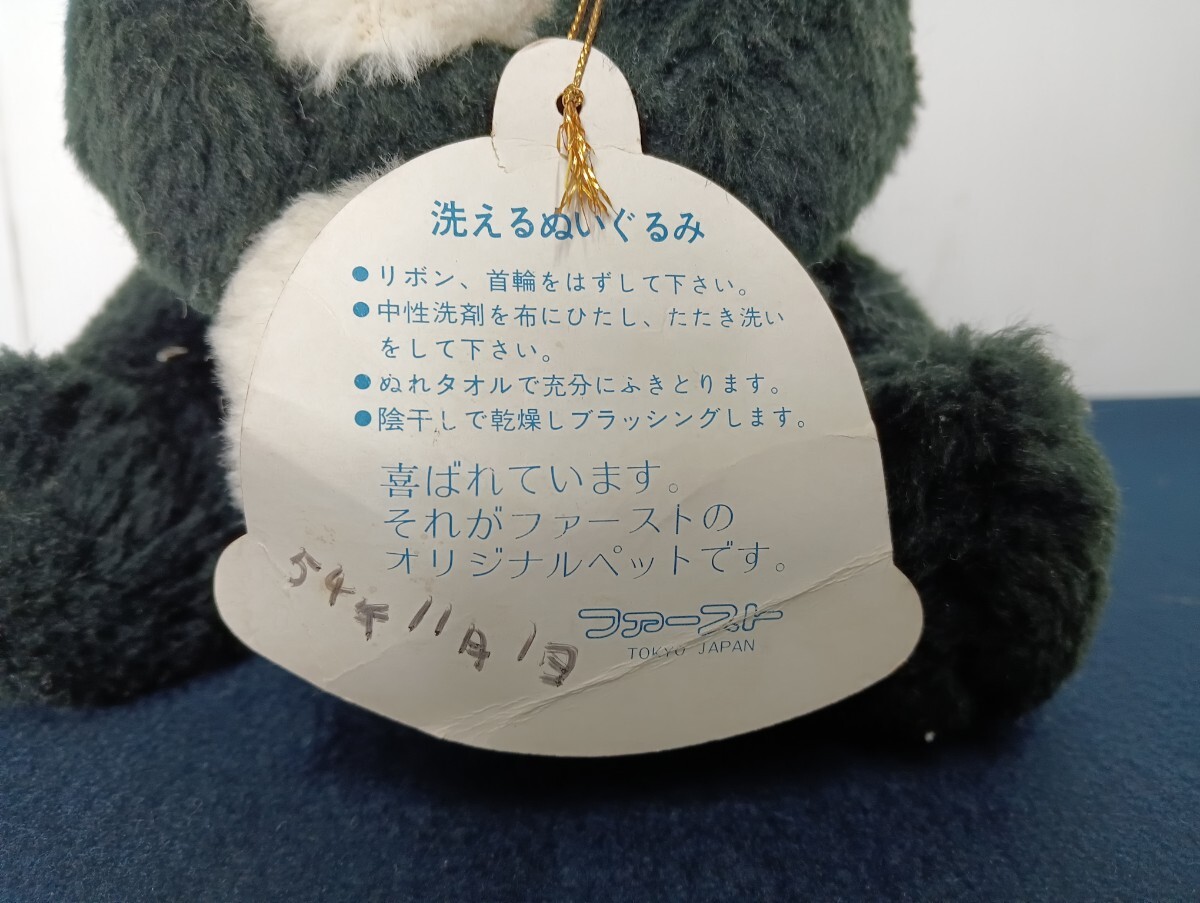 洗えるぬいぐるみ
●リボン、首輪をはずして下さい。
●中性洗剤を布にひたし、たたき洗い
をして下さい。
●ぬれタオルで充分にふきとります。
●陰干しで乾燥しブラッシングします。
喜ばれています。
それがファーストの
オリジナルペットです。
ファースト
TOKYO JAPAN
54年11月1日